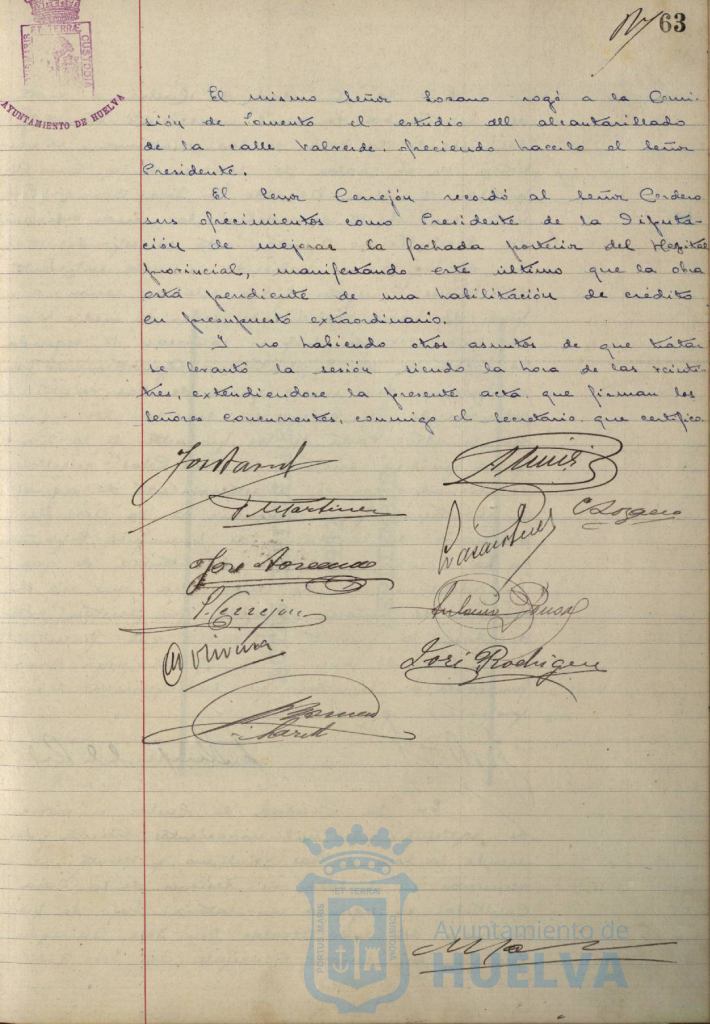 63
ET TERRA
CUSTODIA
AYUNTAMIENTO DE HUELVA
El mismo Señor Lozano rogó a la Comi-
sión de Fomento el estudio del alcantarillado
de la calle Valverde, ofreciendo hacerlo el Señor
Presidente.
El Señor Cerrejón recordó al Señor Cordero
sus ofrecimientos como Presidente de la Diputa-
ción de mejorar la fachada posterior del Hospital
provincial, manifestando este último que la obra
está pendiente de una habilitación de crédito
en presupuesto extraordinario.
Y no habiendo otros asuntos de que tratar
se levantó la sesión siendo la hora de las veinti-
tres, extendiendose la presente acta que firman los
señores concurrentes, conmigo el Secretario que certifico.
J. Martinez
C Lozano
José
P. Cerrejón
Oliveira
José Rodriguez
ET TERRA
PORTUS MARIS
CUSTODIA
Ayuntamiento de
HUELVA